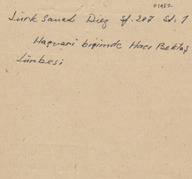 01882
Türk Sanatı Diez sf. 207 Sd. 1
Haçvari biçimde Hacı Bektaş
Türbesi